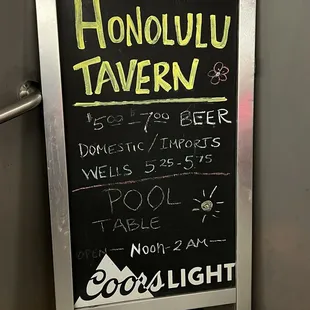 HONOLULU
TAVERN
$5.00 - 7.00 BEER
DOMESTIC / IMPORTS
WELLS 5.25-5.75
POOL
TABLE
OPEN — NOON-2 AM —
Coors LIGHT